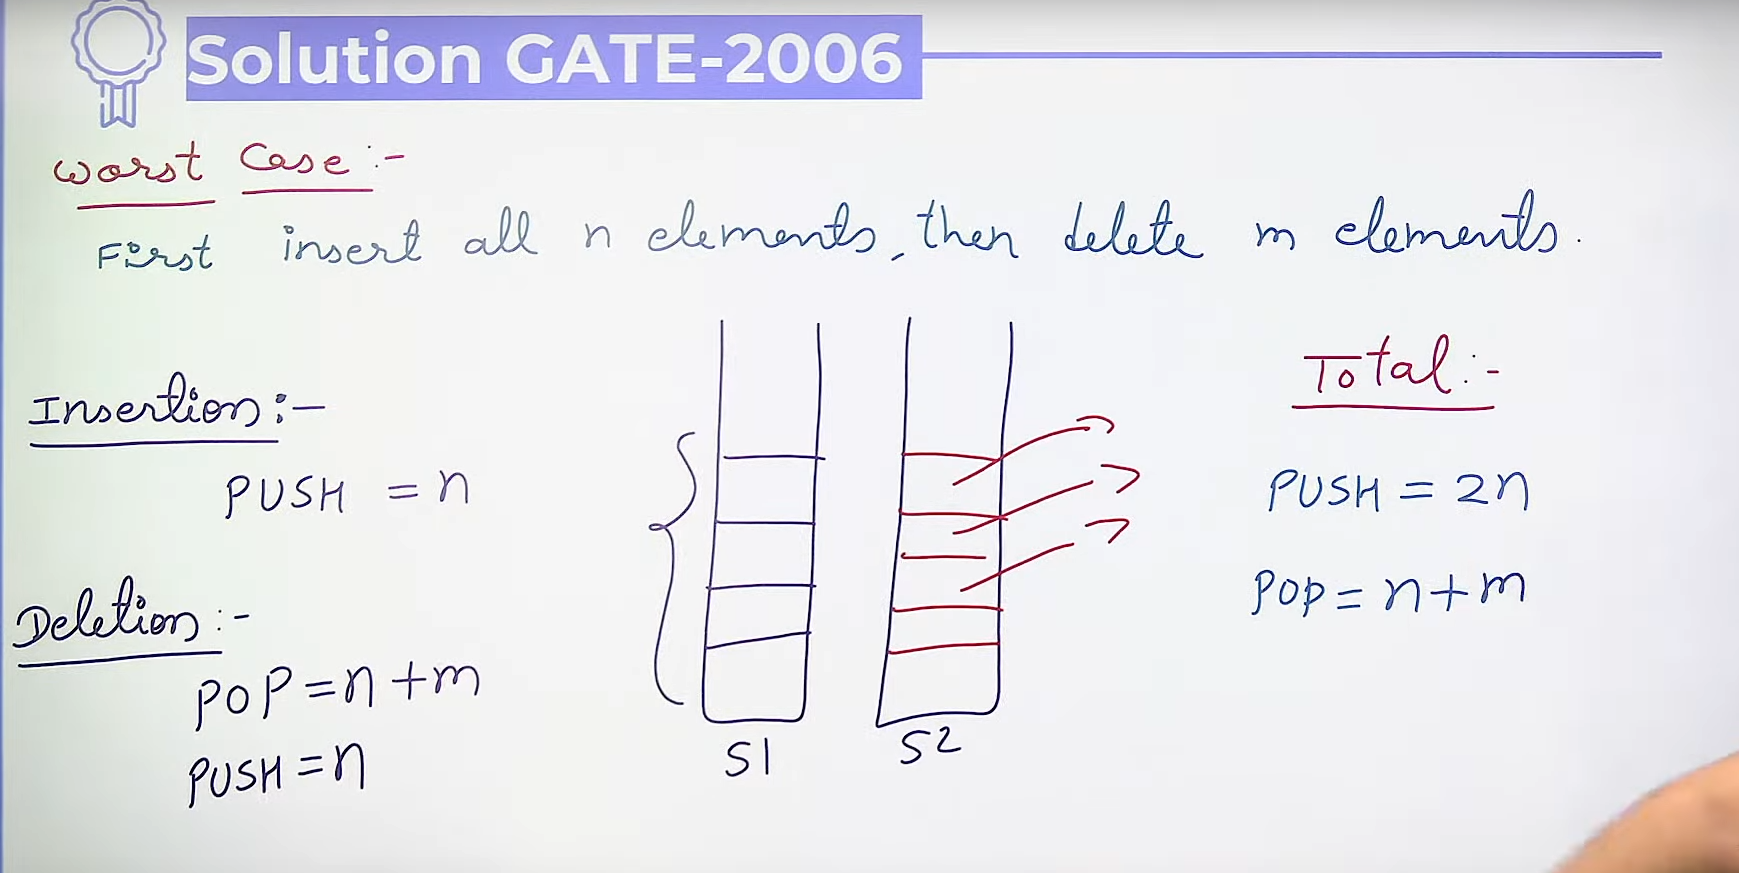 Solution GATE-2006
Worst Case :-
First insert all n elements, then delete m elements.
Insertion :-
PUSH = n
Deletion :-
POP = n + m
PUSH = n
S1
S2
Total :-
PUSH = 2n
POP = n + m